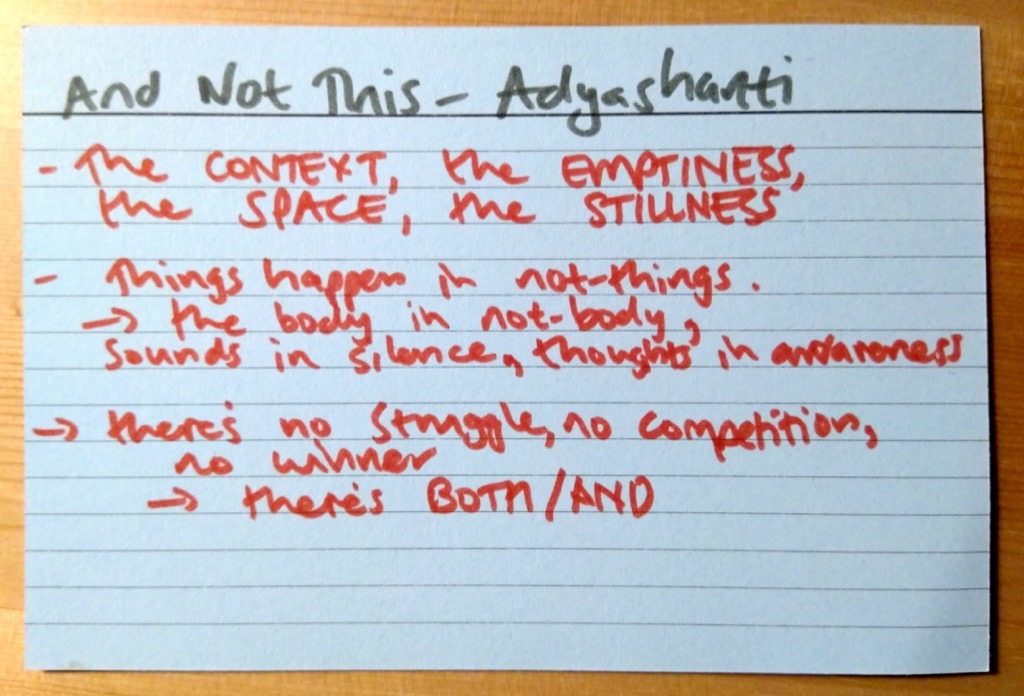 And Not This - Adyashanti
- The CONTEXT, the EMPTINESS,
the SPACE, the STILLNESS
- Things happen in not-things.
→ the body in not-body,
sounds in silence, thoughts in awareness
→ there's no struggle, no competition,
no winner
→ there's BOTH/AND